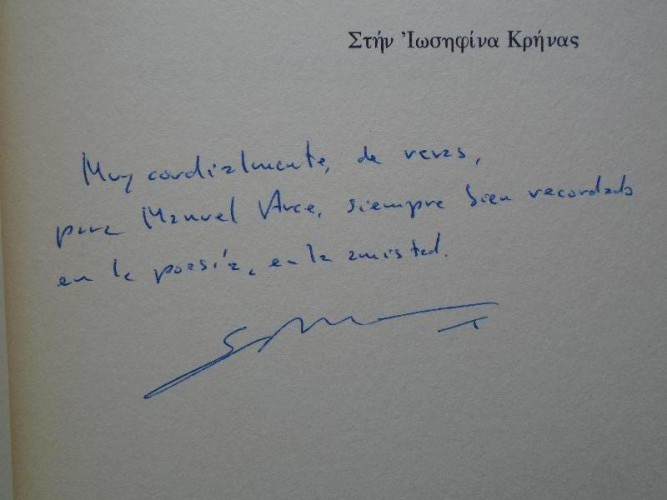 Στήν Ἰωσηφίνα Κρήνας
Muy cordialmente, de veras,
para Manuel Arce, siempre bien recordado
en la poesía, en la amistad.